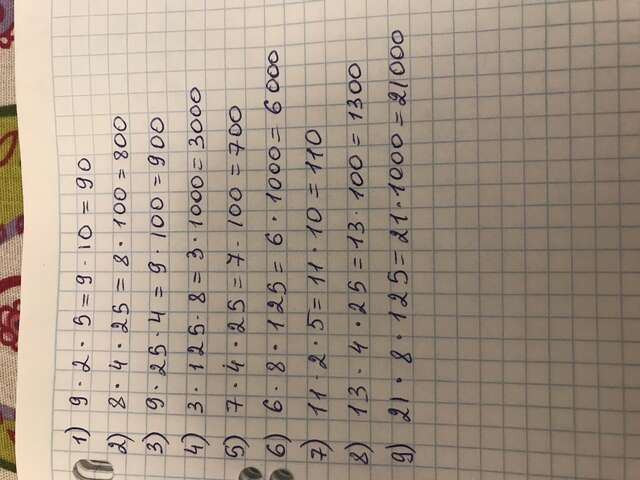 1) 9 · 2 · 5 = 9 · 10 = 90
2) 8 · 4 · 25 = 8 · 100 = 800
3) 9 · 25 · 4 = 9 · 100 = 900
4) 3 · 125 · 8 = 3 · 1000 = 3000
5) 7 · 4 · 25 = 7 · 100 = 700
6) 6 · 8 · 125 = 6 · 1000 = 6000
7) 11 · 2 · 5 = 11 · 10 = 110
8) 13 · 4 · 25 = 13 · 100 = 1300
9) 21 · 8 · 125 = 21 · 1000 = 21000